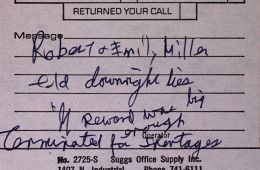 RETURNED YOUR CALL
Message
Robert & Emily Miller
told downright lies
"If Reward was big
enough
Operator
Terminated for Shortages
No. 2725-S Suggs Office Supply Inc.
1407 N. Industrial Phone 741-5111